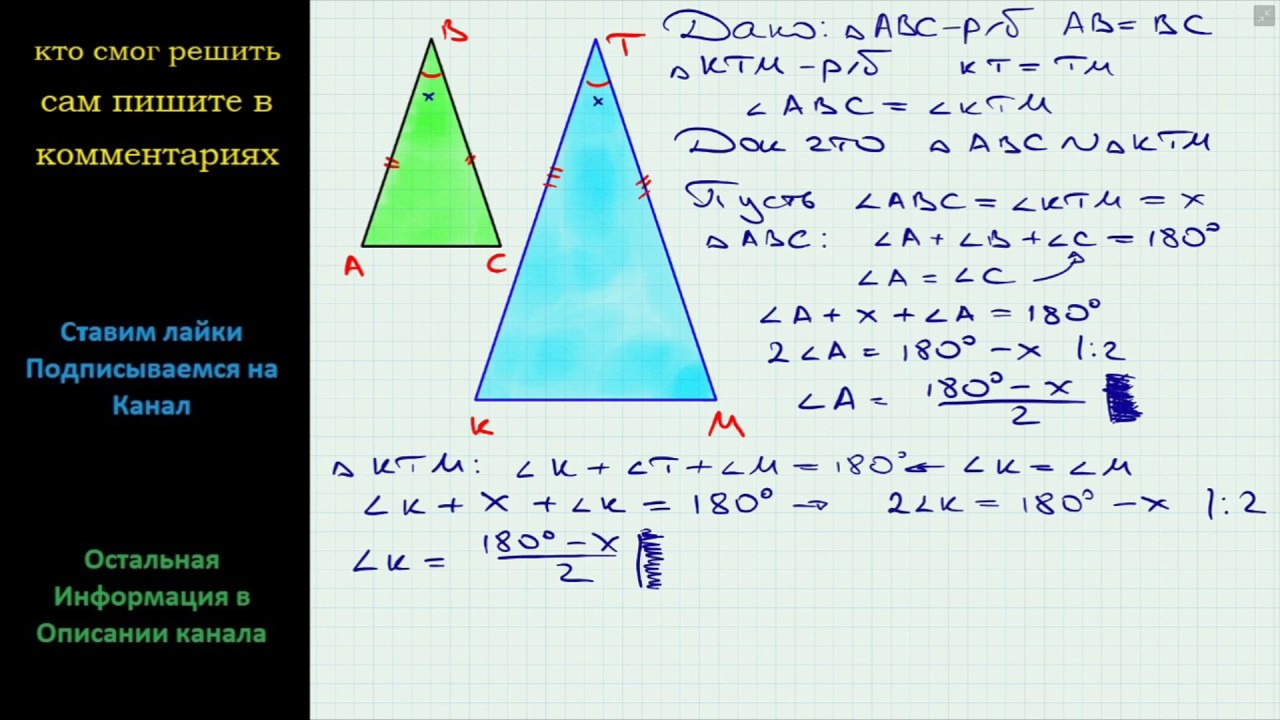 кто смог решить
сам пишите в
комментариях
Ставим лайки
Подписываемся на
Канал
Остальная
Информация в
Описании канала
B
x
A
C
T
x
K
M
Дано: △ABC-р/б AB = BC
△KTM - р/б KT = TM
∠ABC = ∠KTM
Док что △ABC ~ △KTM
Пусть ∠ABC = ∠KTM = x
△ABC: ∠A + ∠B + ∠C = 180°
∠A = ∠C
∠A + x + ∠A = 180°
2∠A = 180° - x |:2
∠A = (180° - x)/2
△KTM: ∠K + ∠T + ∠M = 180° ← ∠K = ∠M
∠K + x + ∠K = 180° → 2∠K = 180° - x |:2
∠K = (180° - x)/2